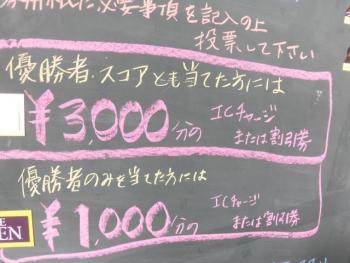 必要事項を記入の上
投票して下さい
優勝者.スコアとも当てた方には
¥3,000分の
ICチャージ
または割引券
優勝者のみを当てた方には
¥1,000分の
ICチャージ
または割引券
EN